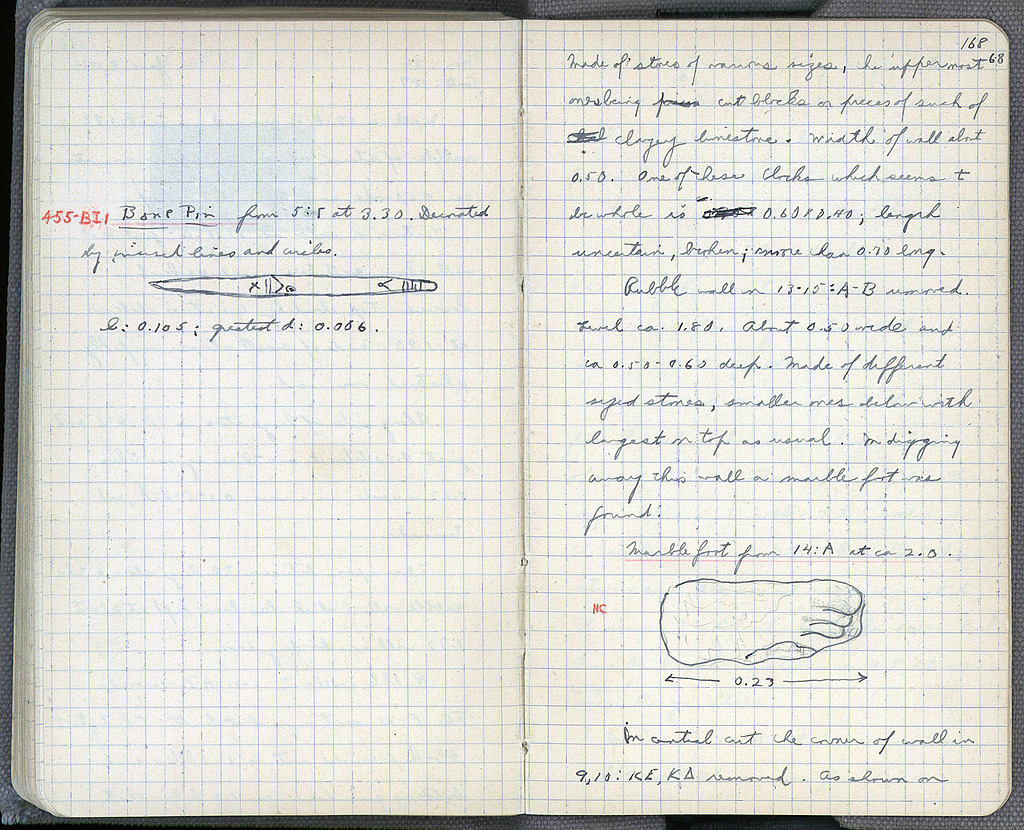 455-BI1 Bone Pin from 5:5 at 3.30. Decorated
by incised lines and circles.
l: 0.105; greatest d: 0.006.
168
68
Made of stones of various sizes, the uppermost
ones being cut blocks or pieces of such of
clayey limestone. Width of wall abt
0.50. One of these blocks which seems t
be whole is 0.60 x 0.40; length
uncertain, broken; more than 0.70 long.
Rubble wall in 13-15:A-B removed.
Level ca. 1.80. About 0.50 wide and
ca 0.50-0.60 deep. Made of different
sized stones, smaller ones below with
largest on top as usual. In digging
away this wall a marble foot was
found:
Marble foot from 14:A at ca 2.0.
NC
0.23
In central cut the corner of wall in
9,10: KE, KΔ removed. As shown on